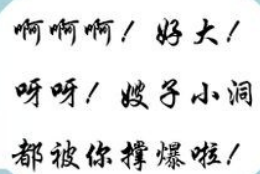 啊啊啊！好大！
呀呀！嫂子小洞
都被你撑爆啦！